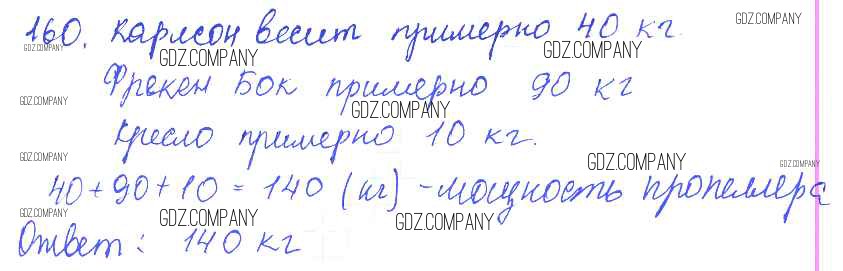 160. Карлсон весит примерно 40 кг.
GDZ.COMPANY
GDZ.COMPANY
GDZ.COMPANY
GDZ.COMPANY
Фрекен Бок примерно 90 кг
GDZ.COMPANY
GDZ.COMPANY
Кресло примерно 10 кг.
GDZ.COMPANY
GDZ.COMPANY
GDZ.COMPANY
40 + 90 + 10 = 140 (кг) - мощность пропеллера
GDZ.COMPANY
GDZ.COMPANY
GDZ.COMPANY
Ответ: 140 кг